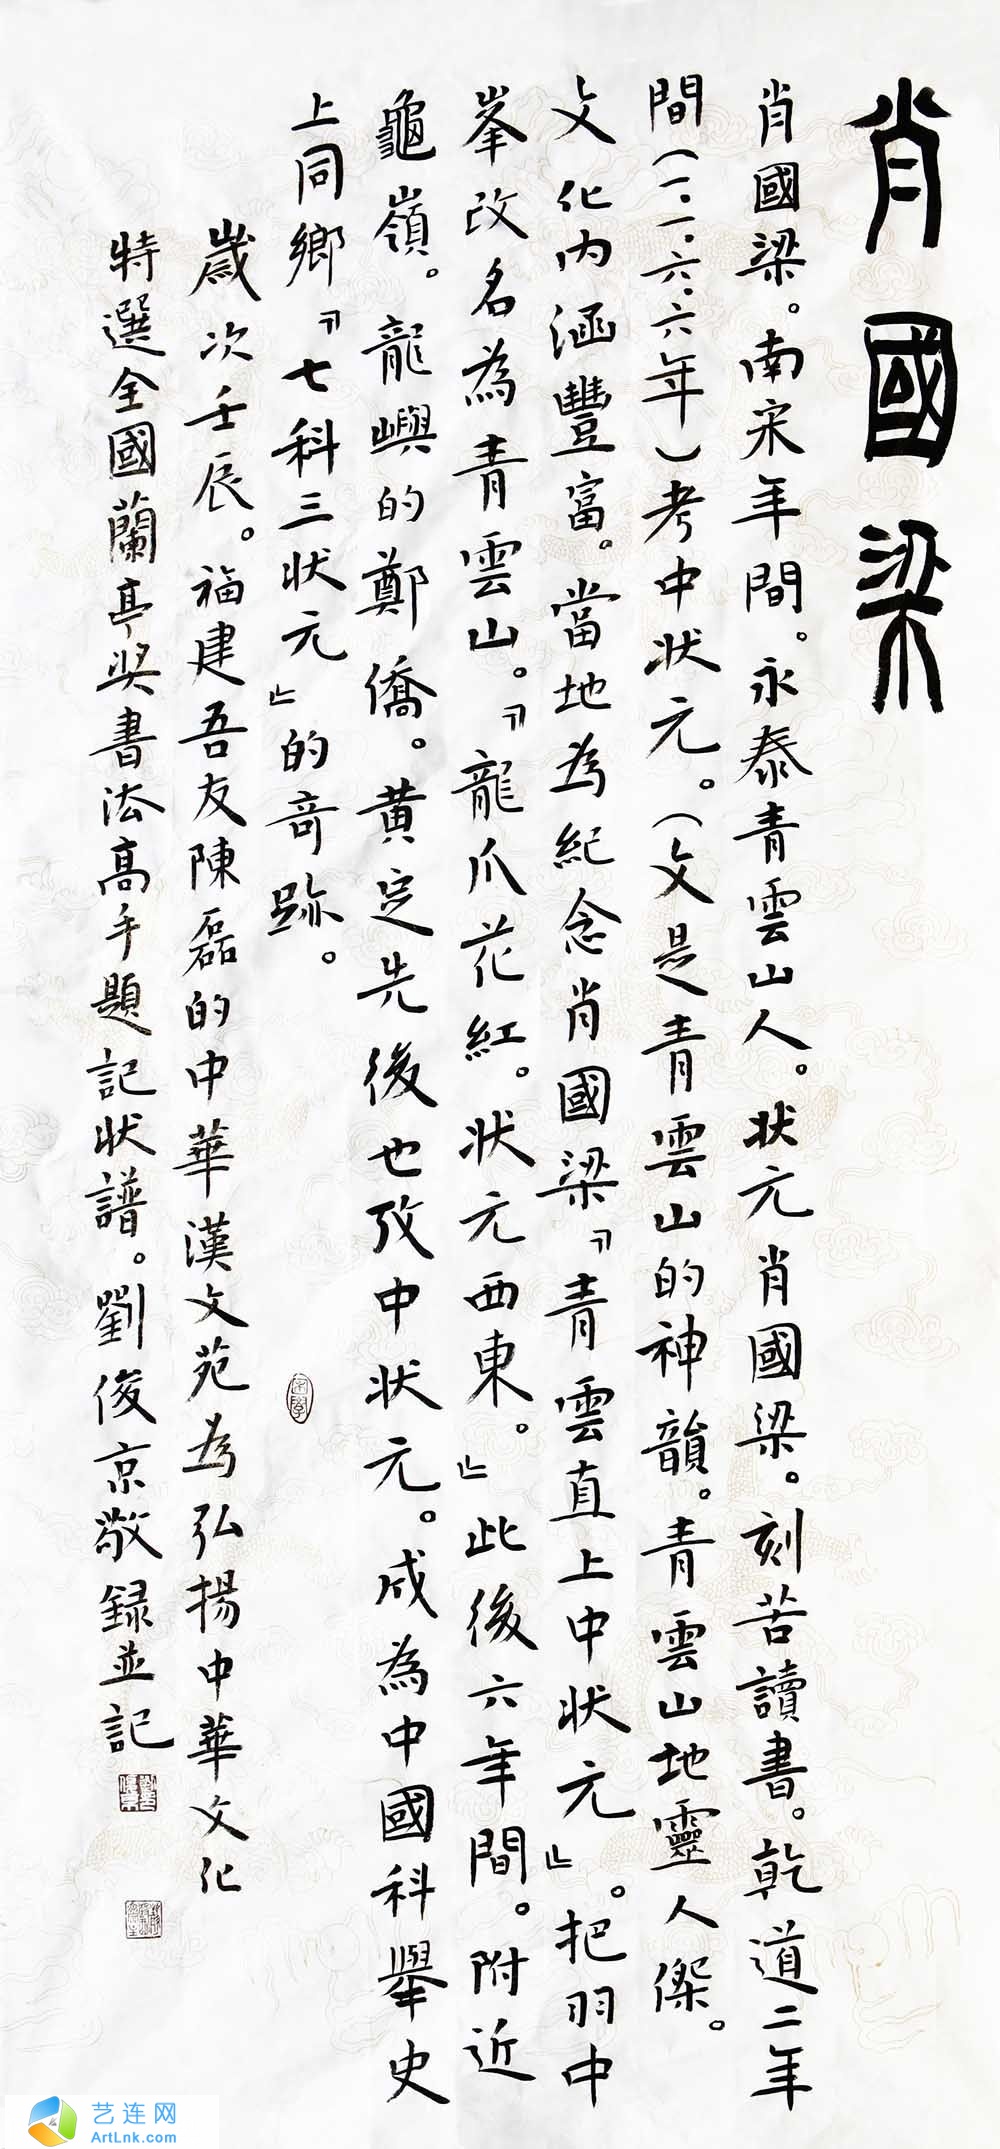 肖國梁
肖國梁。南宋年間。永泰青雲山人。状元肖國梁。刻苦讀書。乾道二年
間(一一六六年)考中状元。(文是青雲山的神韻。青雲山地靈人傑。
文化内涵豐富。當地為紀念肖國梁『青雲直上中状元』。把羽中
峯改名為青雲山。『龍爪花紅。状元西東。』此後六年間。附近
龜嶺。龍嶼的鄭僑。黄定先後也攷中状元。成為中國科舉史
上同鄉『七科三状元』的奇跡。
歲次壬辰。福建吾友陳磊的中華漢文苑為弘揚中華文化
特選全國蘭亭奖書法高手題記状譜。劉俊京敬録並記
艺连网
ArtLnk.com